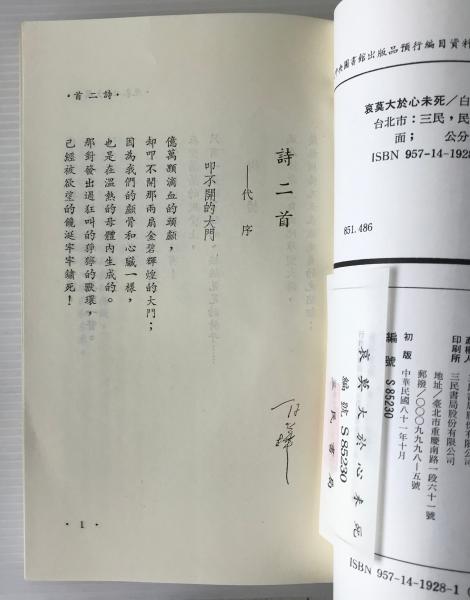 ・詩二首・
詩二首
——代序
叩不開的大門
億萬顆滴血的頭顱,
却叩不開那兩扇金碧輝煌的大門;
因為我們的顱骨和心臟一樣,
也是在溫熱的母體內生成的。
已經被欲望的饞涎牢牢鏽死!
・1・
中央圖書館出版品預行編目資料
哀莫大於心未死/白
台北市:三民,民
面; 公分
ISBN 957-14-1928
851.486
印刷所
三民書局股份有限公司
地址/臺北市重慶南路一段六十一號
郵撥/〇〇〇九九九八—五號
初版 中華民國八十一年十月
編號 S 85230
哀莫大於心未死
編號 S 85230
三民書局
ISBN 957-14-1928-1